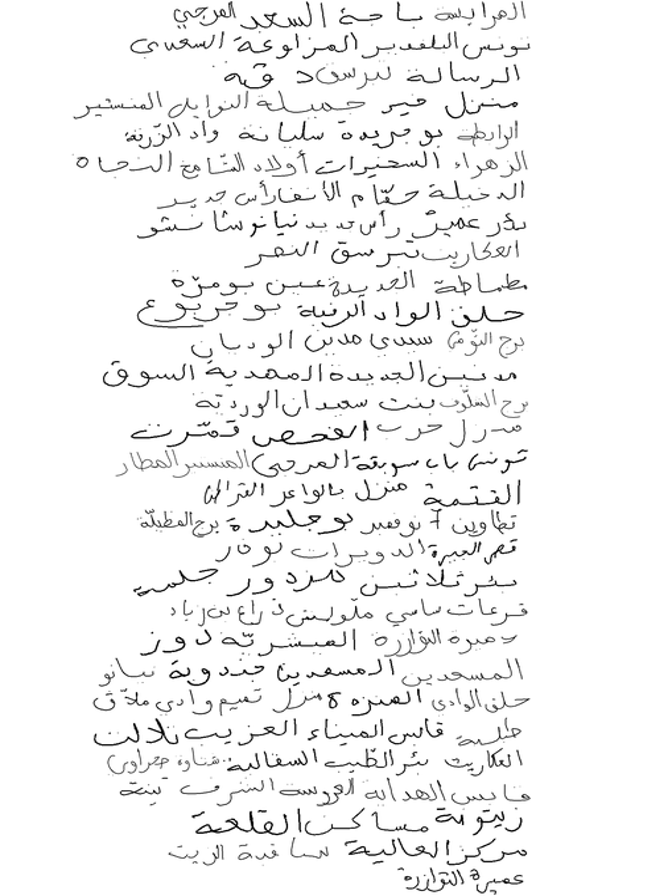 المرايسة باجة السعد المرجي
تونس البلفدير المزاوعة السعدي
الرسالة تبرسق دقة
منزل خير جميلة النوايل المنستير
الرابطة بوجريدة سليانة واد الزرقة
الزهراء السخيرات أولاد الشامخ النجاة
الدخيلة حمّام الأنف رأس جدير
بئر عميرة رأس جديد نيانو شانشو
العكاريت تبرسق النصر
مطماطة الجديدة عين بومرّة
حلق الواد الرقبة بوجربوع
برج التومي سيدي مدين الوديان
مدنين الجديدة المهدية السوق
برج السلوف بنت سعيدان الوردية
منزل حرب الفحص قمّرت
تونس باب سويقة المرجى المنستير المطار
القتمة منزل بالواعر القراطن
تطاوين 7 نوفمبر بوجليدة برج الطبيلة
قصر العيرة الدويرات نوفر
بئر ثلاثين هزدور جلمة
قرعات ساسي ملّوليش ذراع بن زياد
عميرة التوازرة المبشرته دوز
المسعدين المسعدين جندوبة نيانو
حلق الوادي المنزه 8 منزل تميم وادي ملاّق
طلبة قابس الميناء العزيب تلالت
العكاريت بئر الطيب السفالية شناوة جحراوي
قابس الهداية العروسة الشرف تينة
زيتونة مساكن القلعة
مركز العالية ساقية الزيت
عميرة التوازرة